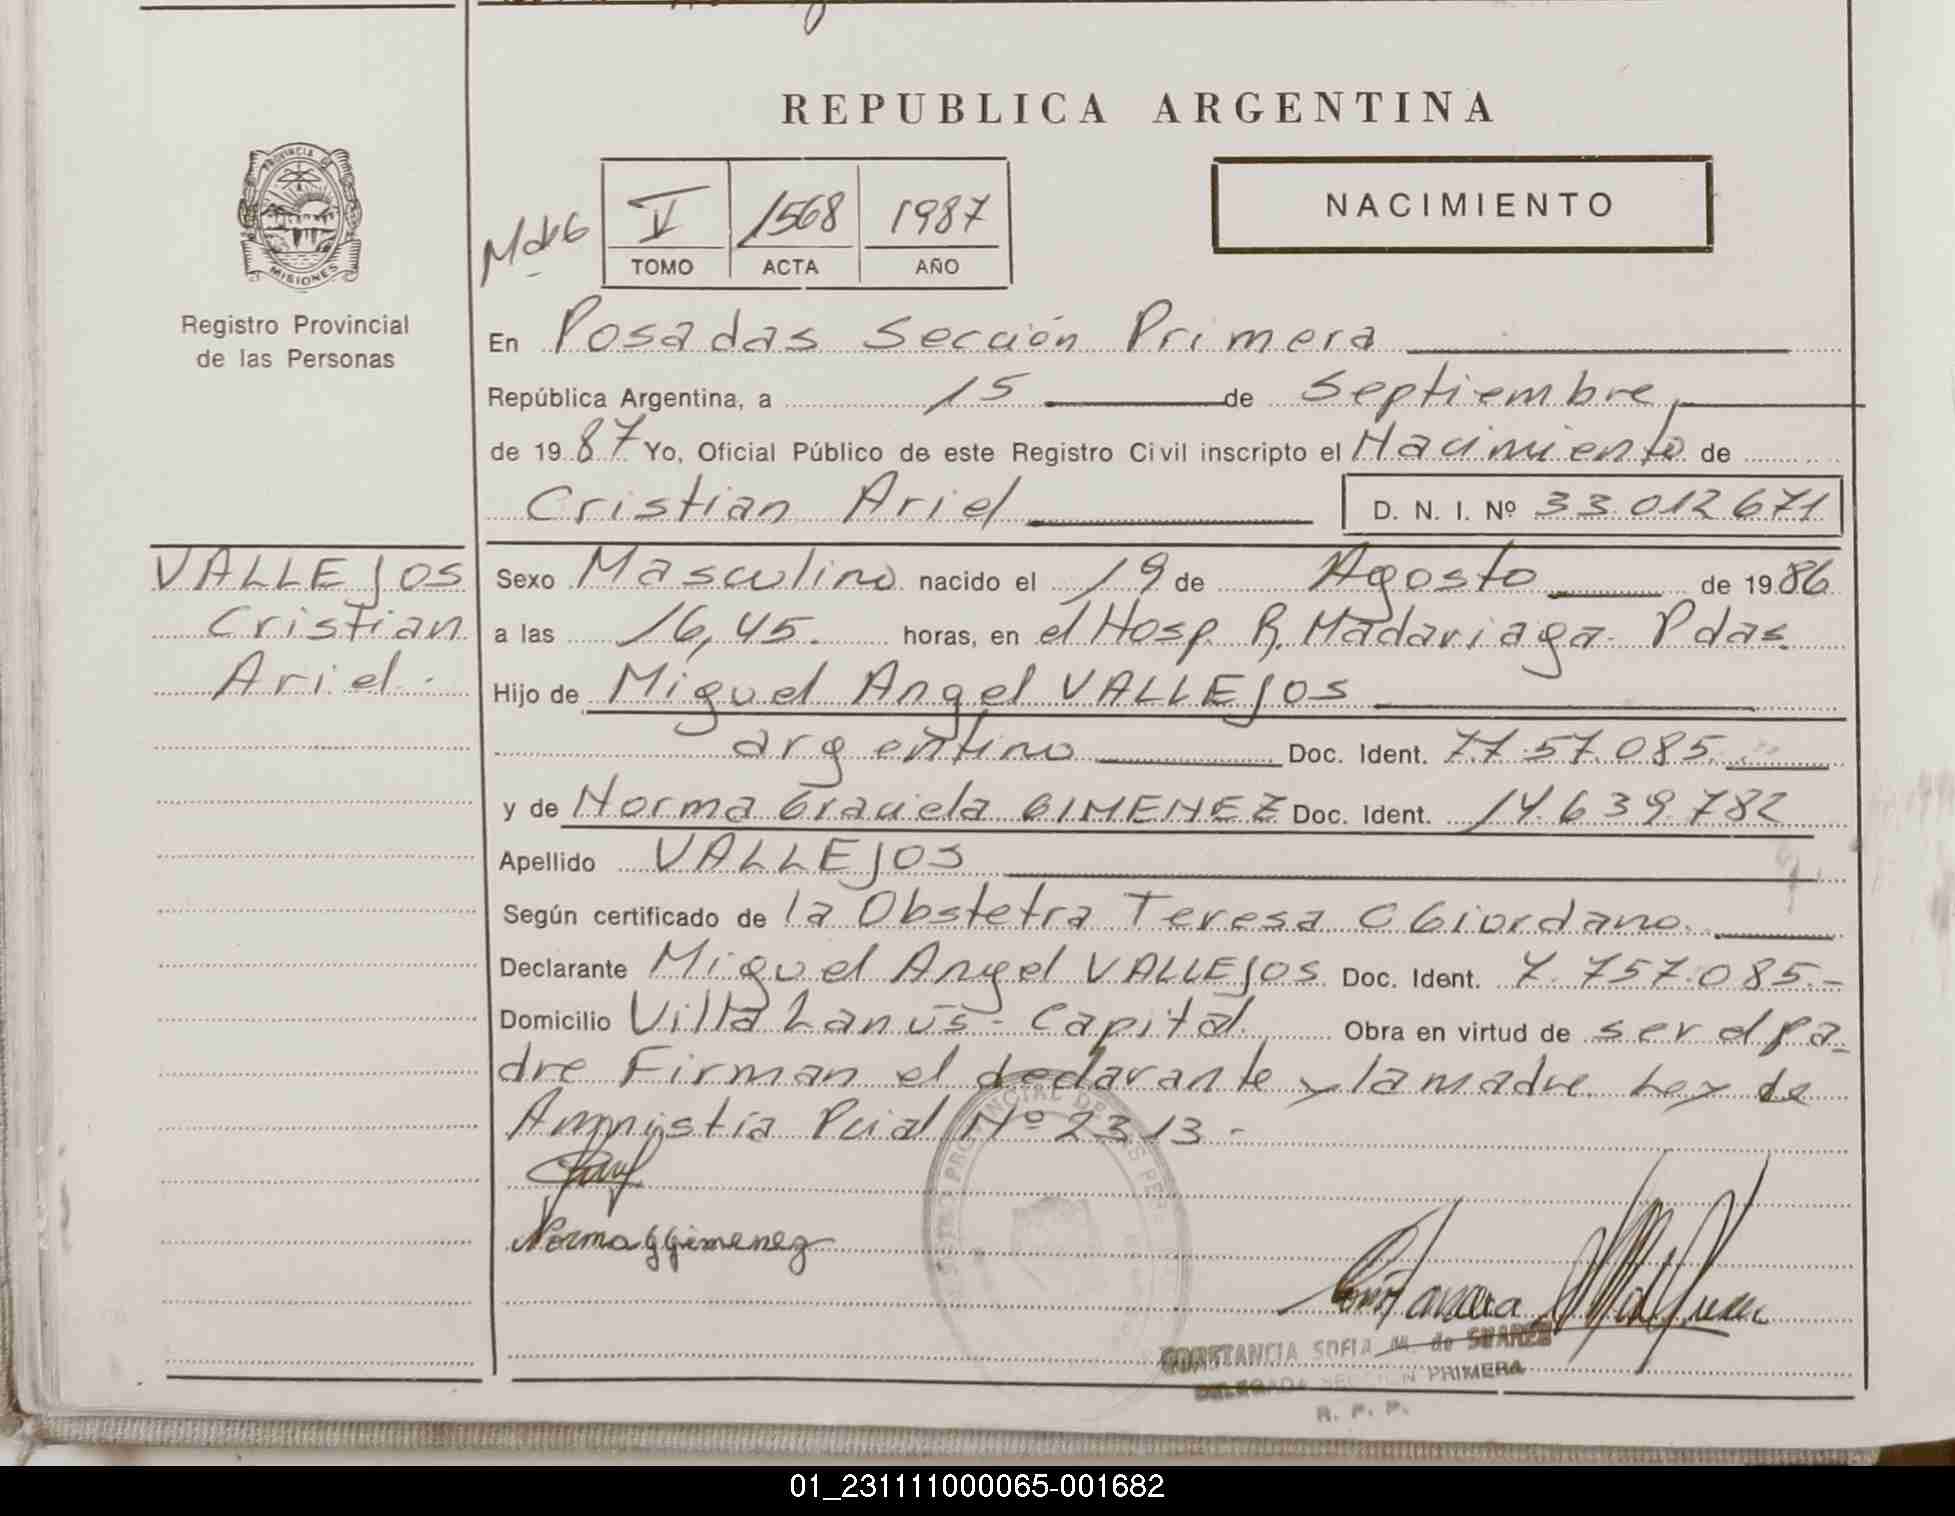 REPUBLICA ARGENTINA
PROVINCIA DE
MISIONES
Registro Provincial
de las Personas
V 1568 1987
TOMO ACTA AÑO
NACIMIENTO
En Posadas Sección Primera
República Argentina, a 15 de Septiembre
de 1987 Yo, Oficial Público de este Registro Civil inscripto el Nacimiento de
Cristian Ariel D. N. I. Nº 33.012671
VALLEJOS
Cristian
Ariel.
Sexo Masculino nacido el 19 de Agosto de 1986
a las 16,45. horas, en el Hosp. R. Madariaga. Pdas.
Hijo de Miguel Angel VALLEJOS
argentino Doc. Ident. 7.757.085.
y de Norma Graciela GIMENEZ Doc. Ident. 14.639.782
Apellido VALLEJOS
Según certificado de la Obstetra Teresa C Giordano.
Declarante Miguel Angel VALLEJOS Doc. Ident. 7.757.085.-
Domicilio Villa Lanús - Capital. Obra en virtud de ser el pa-
dre Firman el declarante y la madre Ley de
Amnistía Pcial Nº 2313-
Norma G Gimenez
CONSTANCIA SOFIA M. de SUAREZ
DELEGADA SECCION PRIMERA
R. P. P.
01_231111000065-001682